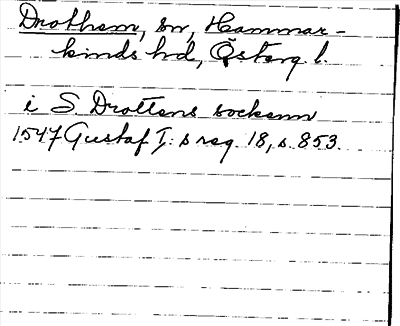 Drothem, sn, Hammar-
kinds hd, Österg. l.
i S. Drottens socken
1547 Gustaf I:s reg. 18, s. 853.